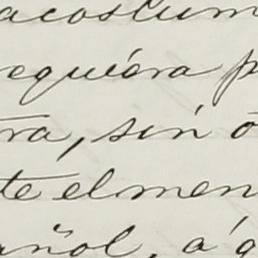 acostum
requiéra p
ra, sin o
te el men
añol, á q